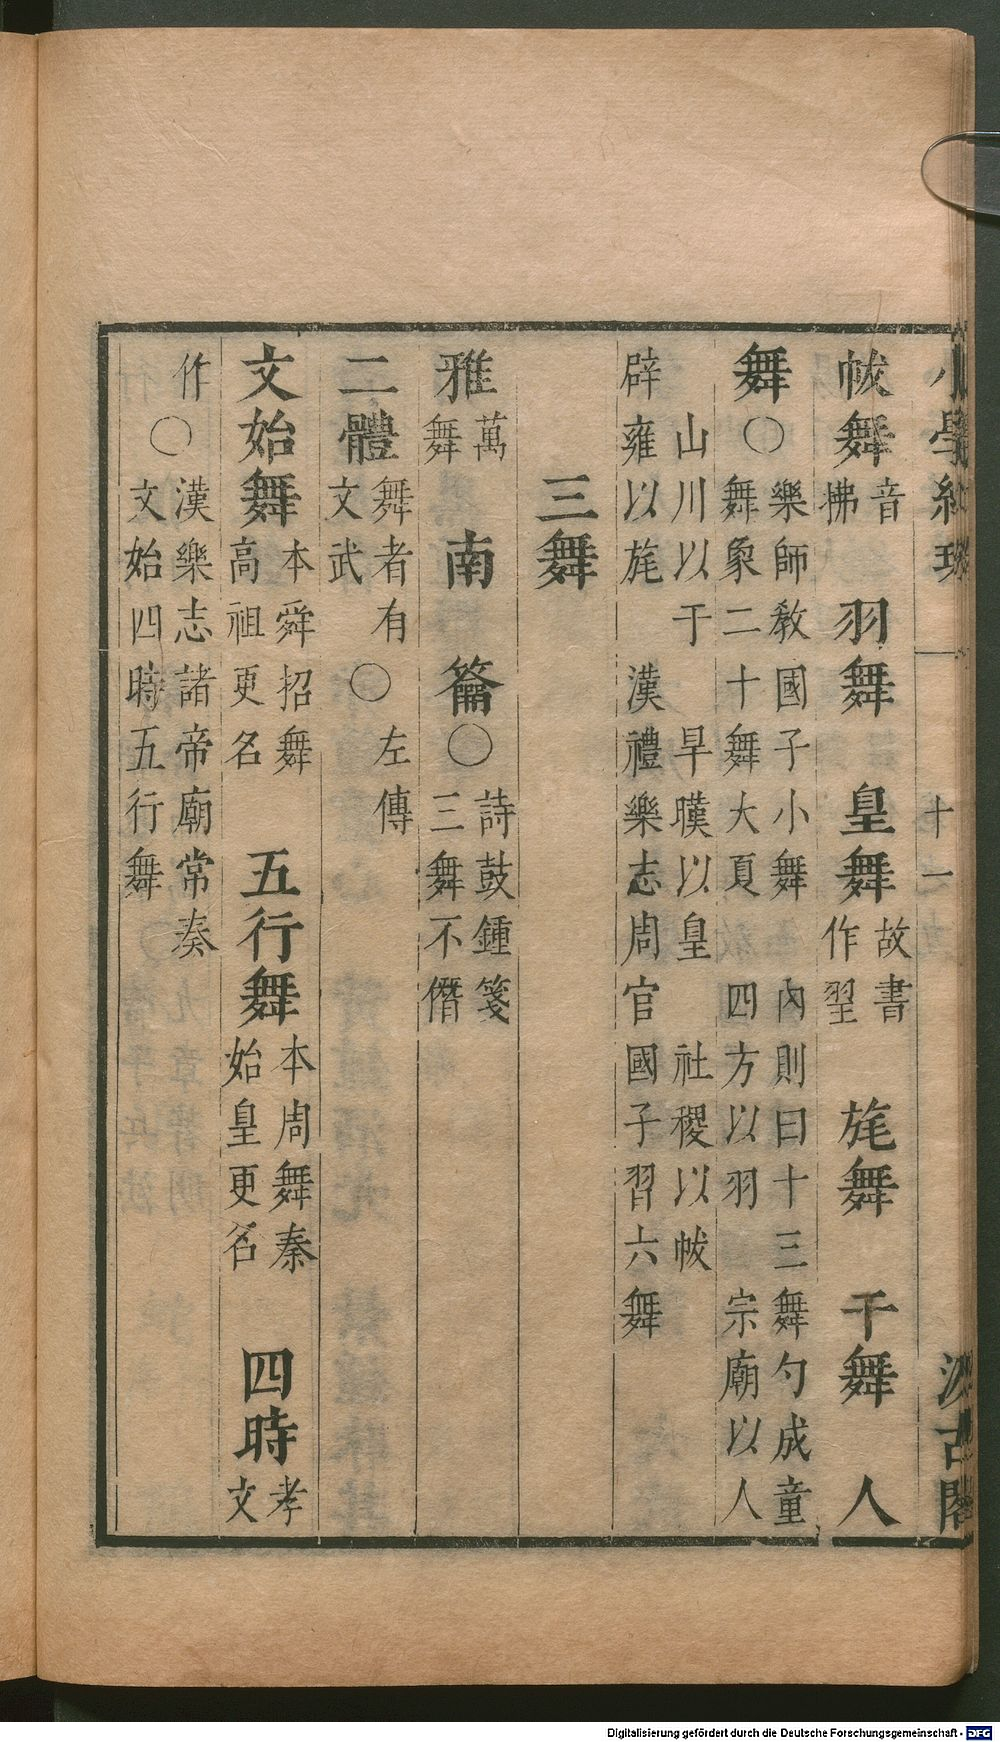 小學紺珠 十一 汲古閣
帗舞 音拂 羽舞 皇舞 故書作䍿 旄舞 干舞 人
舞○樂師教國子小舞 內則曰十三舞勺成童
舞象二十舞大夏 四方以羽 宗廟以人
山川以干 旱暵以皇 社稷以帗
辟雍以旄 漢禮樂志周官國子習六舞
三舞
雅 萬舞 南 籥○詩鼓鍾箋三舞不僭
二體 舞者有文武○左傳
文始舞 本舜招舞高祖更名 五行舞 本周舞秦始皇更名 四時 孝文
作○漢樂志諸帝廟常奏文始四時五行舞
Digitalisierung gefördert durch die Deutsche Forschungsgemeinschaft - DFG